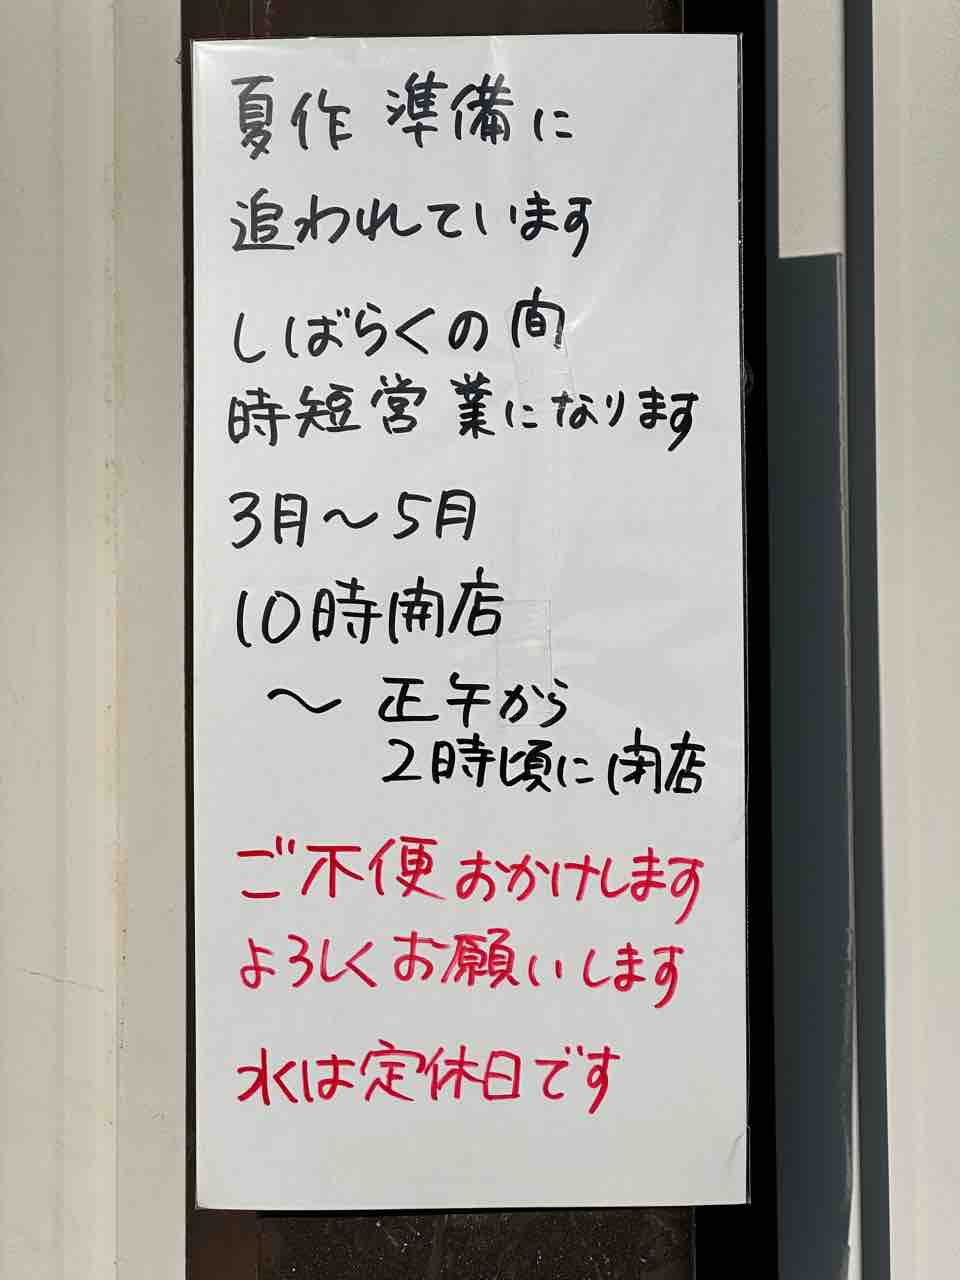 夏作 準備に
追われています
しばらくの間
時短営業になります
3月～5月
10時開店
～ 正午から
2時頃に閉店
ご不便おかけします
よろしくお願いします
水は定休日です